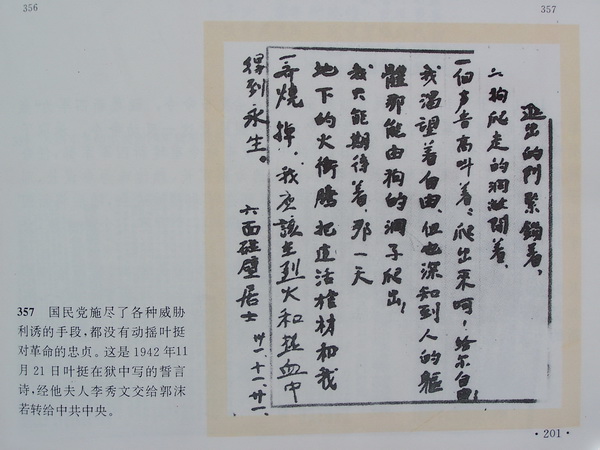 356
357
進出的門緊鎖着,
狗爬走的洞敞開着,
一個声音高叫着:爬出来呵!給尔自由!
我渴望着自由,但也深知到人的軀
體那能由狗的洞子爬出!
我只能期待着,那一天
地下的火衝騰把這活棺材和我
一齊燒掉,我应該在烈火和熱血中
得到永生。
六面碰壁居士 卅一.十一.廿一.
357 国民党施尽了各种威胁
利诱的手段,都没有动摇叶挺
对革命的忠贞。这是1942年11
月21日叶挺在狱中写的誓言
诗,经他夫人李秀文交给郭沫
若转给中共中央。
·201·